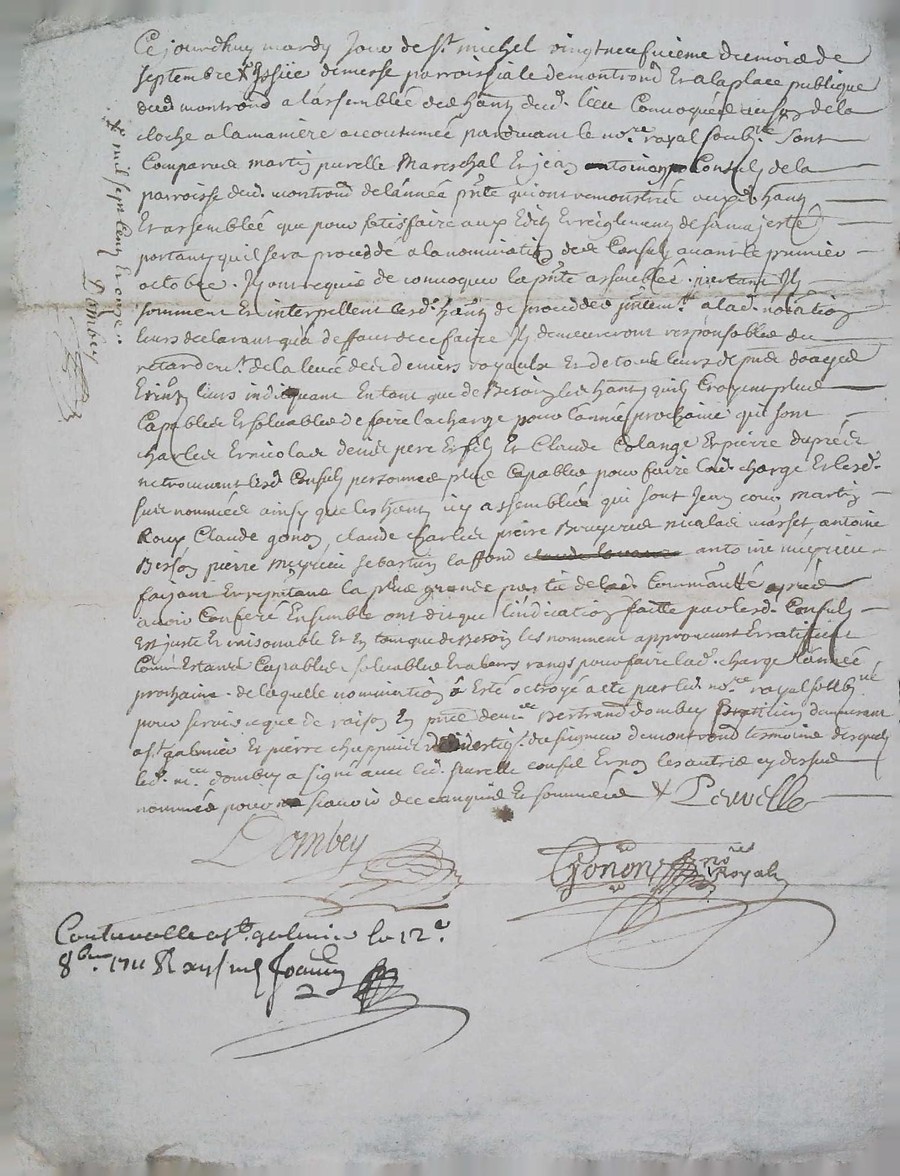 Ce jourdhuy mardy Jour de St. michel vingtneufuieme du mois de
Septembre X Issüe de messe parroissiale de montrond Et a la place publique
dud montrond a l'assemblée des hants dud. lieu Convoquée au son de la
cloche a la maniere accoutumée pardevant le nore. royal soubne. Sont
Comparus martin puvelle Mareschal Et jean Consuls de la
parroisse dud. montrond de l'année pnte qui ont remonstré auxd hants
Et assemblée que pour satisfaire aux Edits Et reiglements de sa majesté
portant qu'il sera procedé a la nomination des Consuls avant le premier
octobre. Ils ont requis de convoquer la pnte assemblée. partant Ils
somment Et interpellent lesd. hants de proceder pntemt. a lad. notation
leurs declarant qu'a deffaut de ce faire Ils demeureront responsables du
retardemt. de la levée des deniers royaulx Et de tous leurs depens domages
Et intz leurs indiquant En tant que de Besoin les hants quils Croyent plus
Capables Et solvables de faire la charge pour l'année prochaine qui sont
charles Et nicolas denis pere Et fils Et Claude Colange Et pierre dupré
ne trouvant lesd Consuls personnes plus Capables pour faire lad. charge Et lesd.
sus nommées ainsy que les hants icy assemblées qui sont Jean martin
Roux Claude gonon, claude charles pierre Bruyeres nicolas marset antoine
Besson pierre sebastien laffond antoine
faisant Et reptans la plus grande partie de lad. Communté après
avoir Conferé Ensemble ont dit que l'indication faitte par lesd. Consuls
Est juste Et raisonable Et En tant que de Besoin les nomment approuvent Et ratifient
Comme Estants Capables solvables Et a leurs rangs pour faire lad. charge l'année
prochaine. de laquelle nomination a Esté octroyé acte par led. nore royal soubne
pour servir ce que de raison En pnce de me. Bertrand dombey Pratitien demeurant
a st. galmier Et pierre chappuis du seigneur de montrond tesmoins desquels
led. me. dombey a signé avec led. puvelle consul Et non les autres cy dessus
nommés pour ne sçavoir de ce enquis Et sommés X Peuvelle
Dombey
Gonon nore Royal
Controollé a st. galmier le 12e
8bre. 1711 R
X mil sept cents Et onze
Dombey